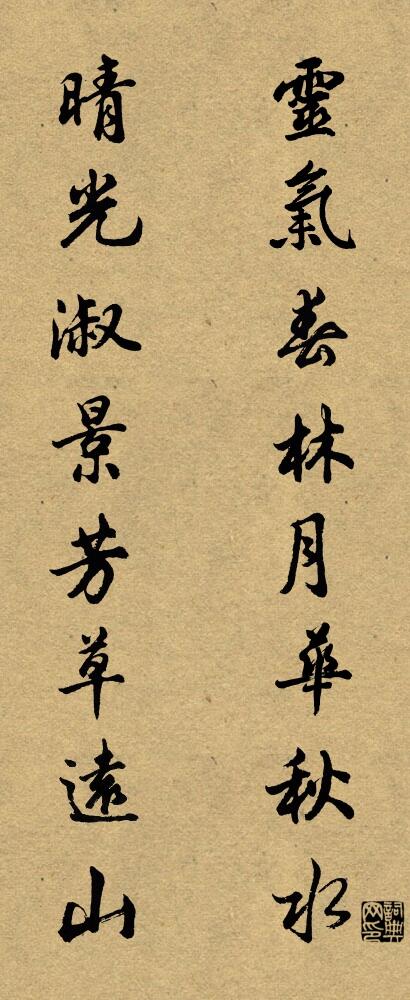 靈氣春林月華秋水
晴光淑景芳草遠山
詞典网印